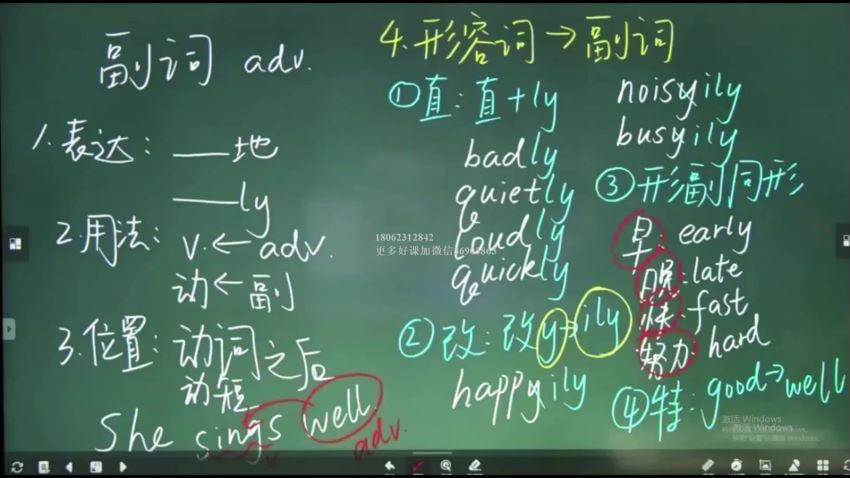 副词 adv.
1. 表达: ——地
——ly
2. 用法: v. ← adv.
动 ← 副
3. 位置: 动词之后
动短
She sings well.
v adv.
4. 形容词 → 副词
① 直: 直+ly
badly
quietly
loudly
quickly
② 改: 改y→ily
happy.ily
noisy.ily
busy.ily
③ 形副同形
早. early
晚. late
快. fast
努力. hard
④ 特: good→well
18062312842
更多好课加微信
激活 Windows
激活 Windows